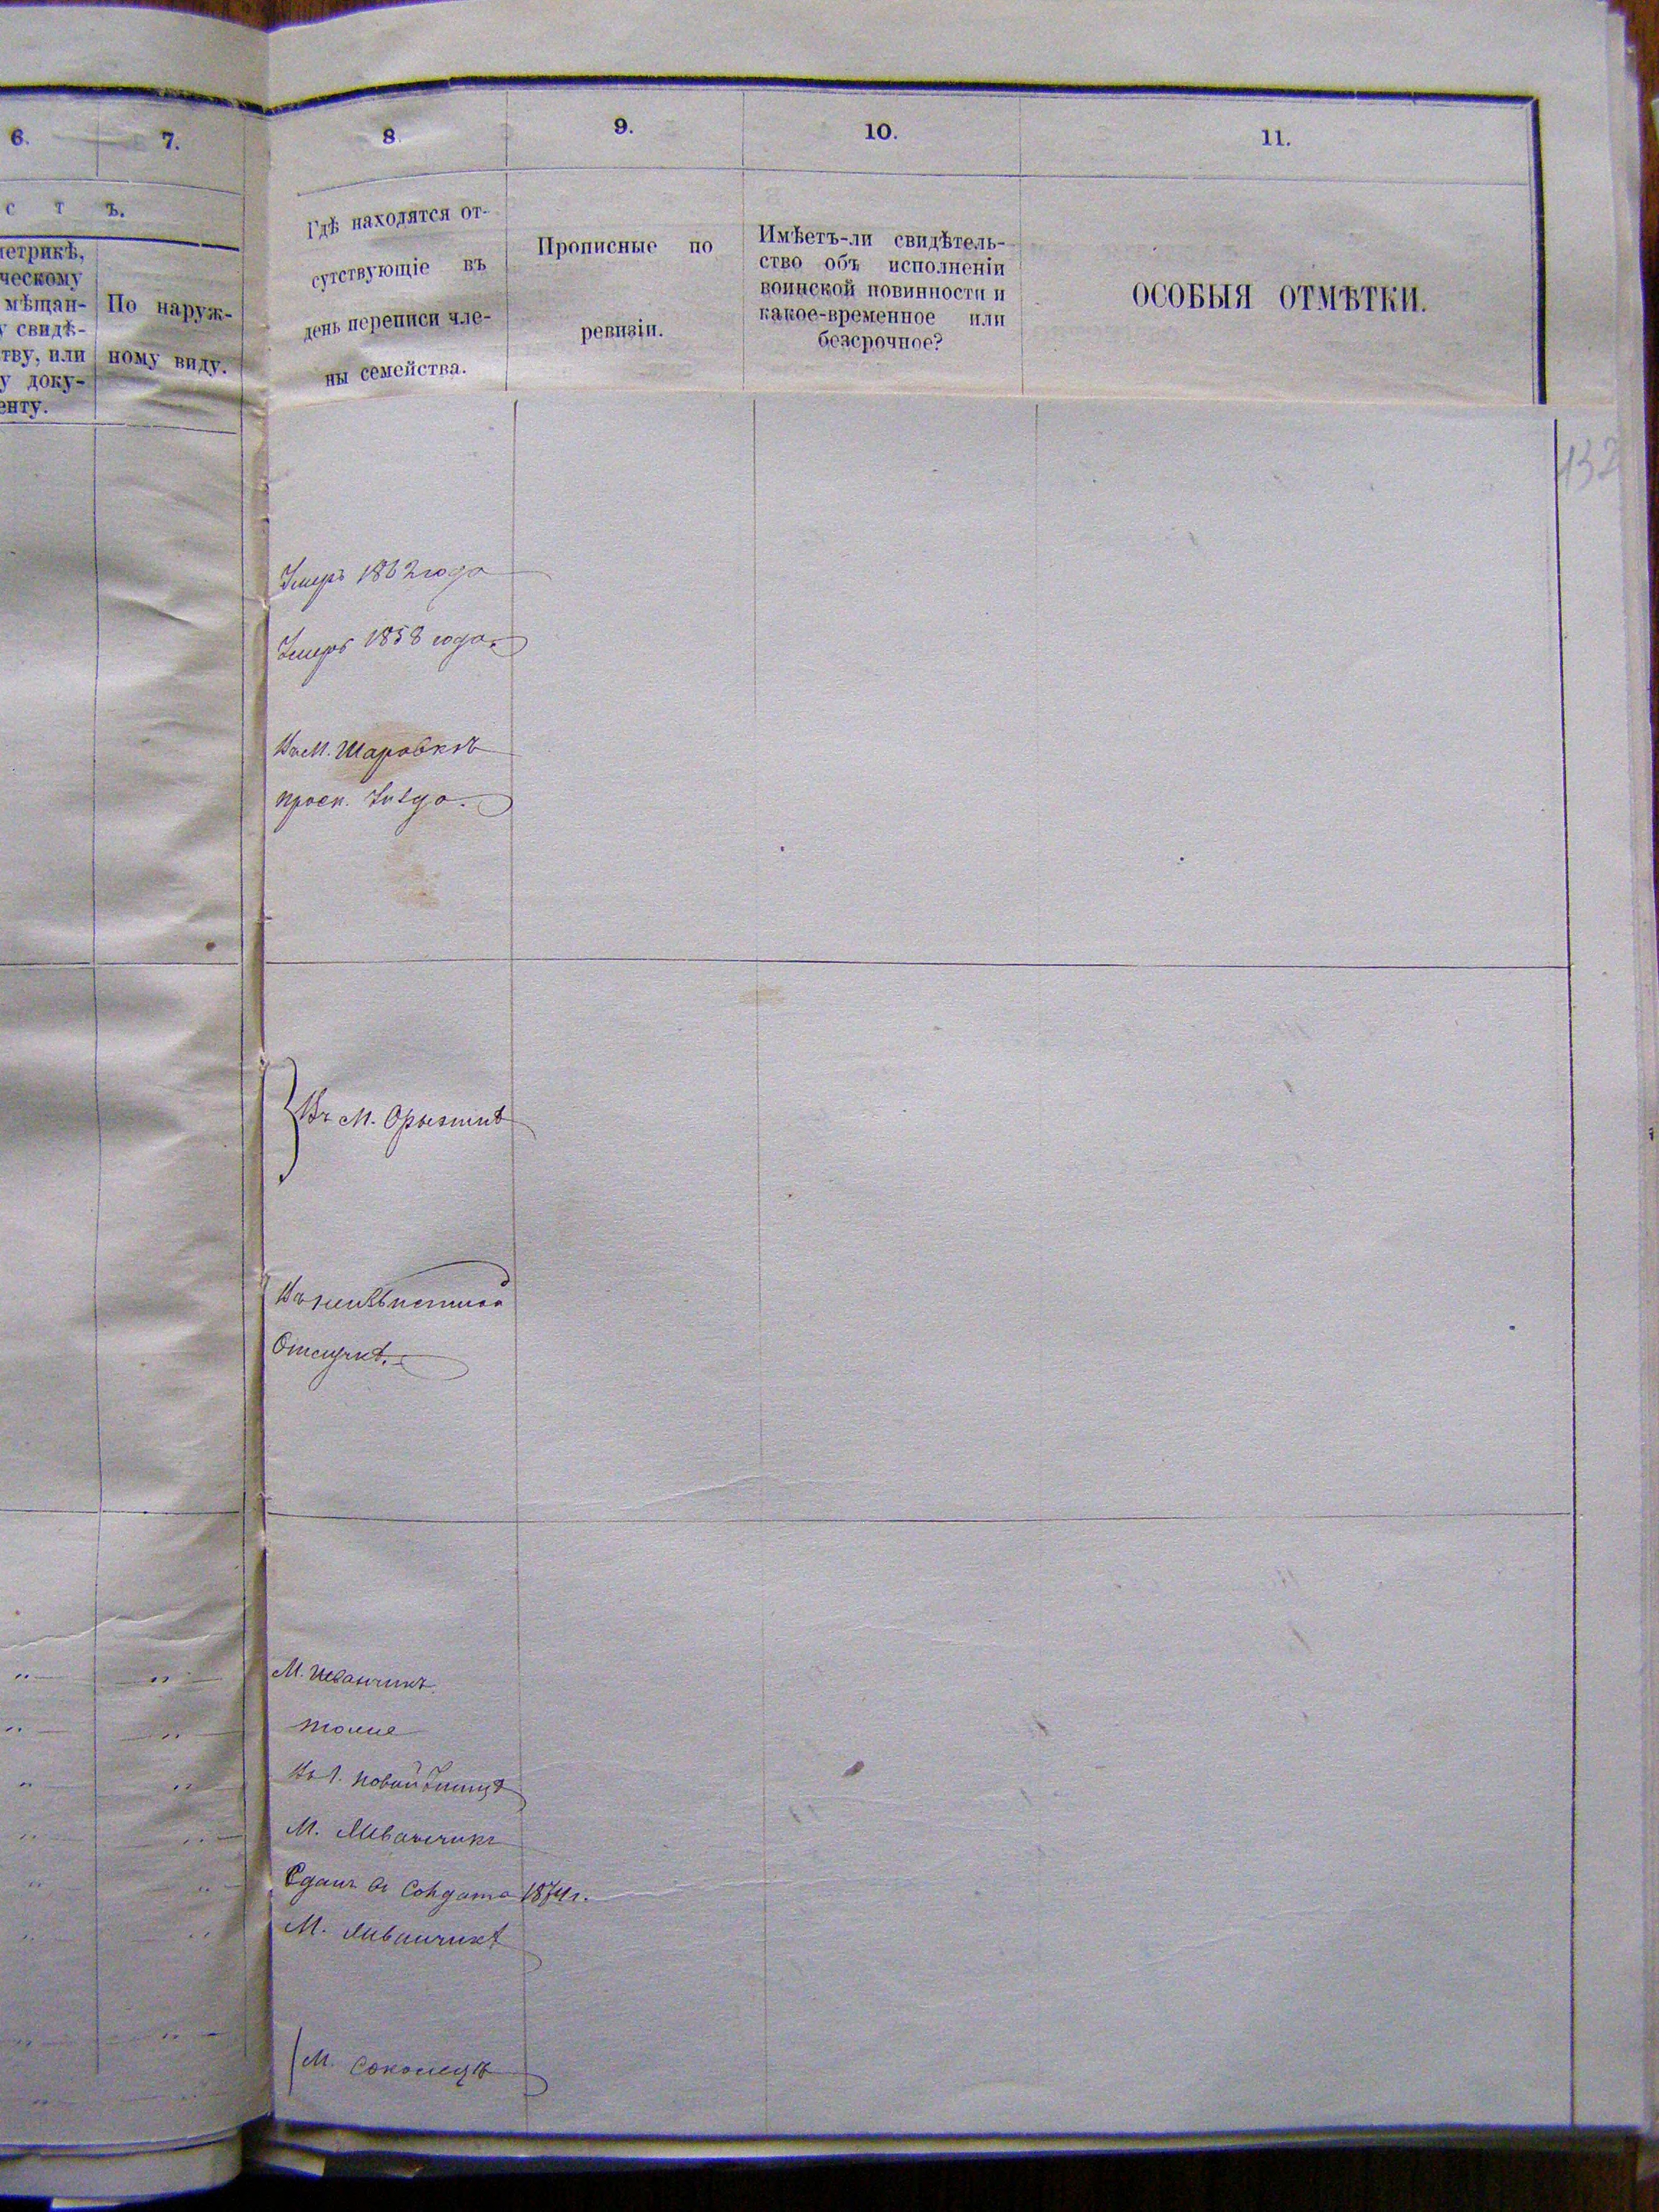 6.
7.
8.
9.
10.
11.
с т ъ.
метрикѣ,
ческому
мѣщан-
у свидѣ-
тву, или
у доку-
енту.
По наруж-
ному виду.
Гдѣ находятся от-
сутствующіе въ
день переписи чле-
ны семейства.
Прописные по
ревизіи.
Имѣетъ-ли свидѣтель-
ство объ исполненіи
воинской повинности и
какое-временное или
безсрочное?
ОСОБЫЯ ОТМѢТКИ.
132
Умеръ 1862 года
Умеръ 1858 года.
Въ М. Шаровкѣ
проск. Уѣзда.
Въ М. Орынинѣ
Въ неизвѣстной
Отлучкѣ.
М. Жванчикъ.
тоже
Въ Г. Новой Ушицѣ
М. Жванчикъ
Сданъ въ Солдата 1874 г.
М. Жванчикѣ
М. Соколецъ